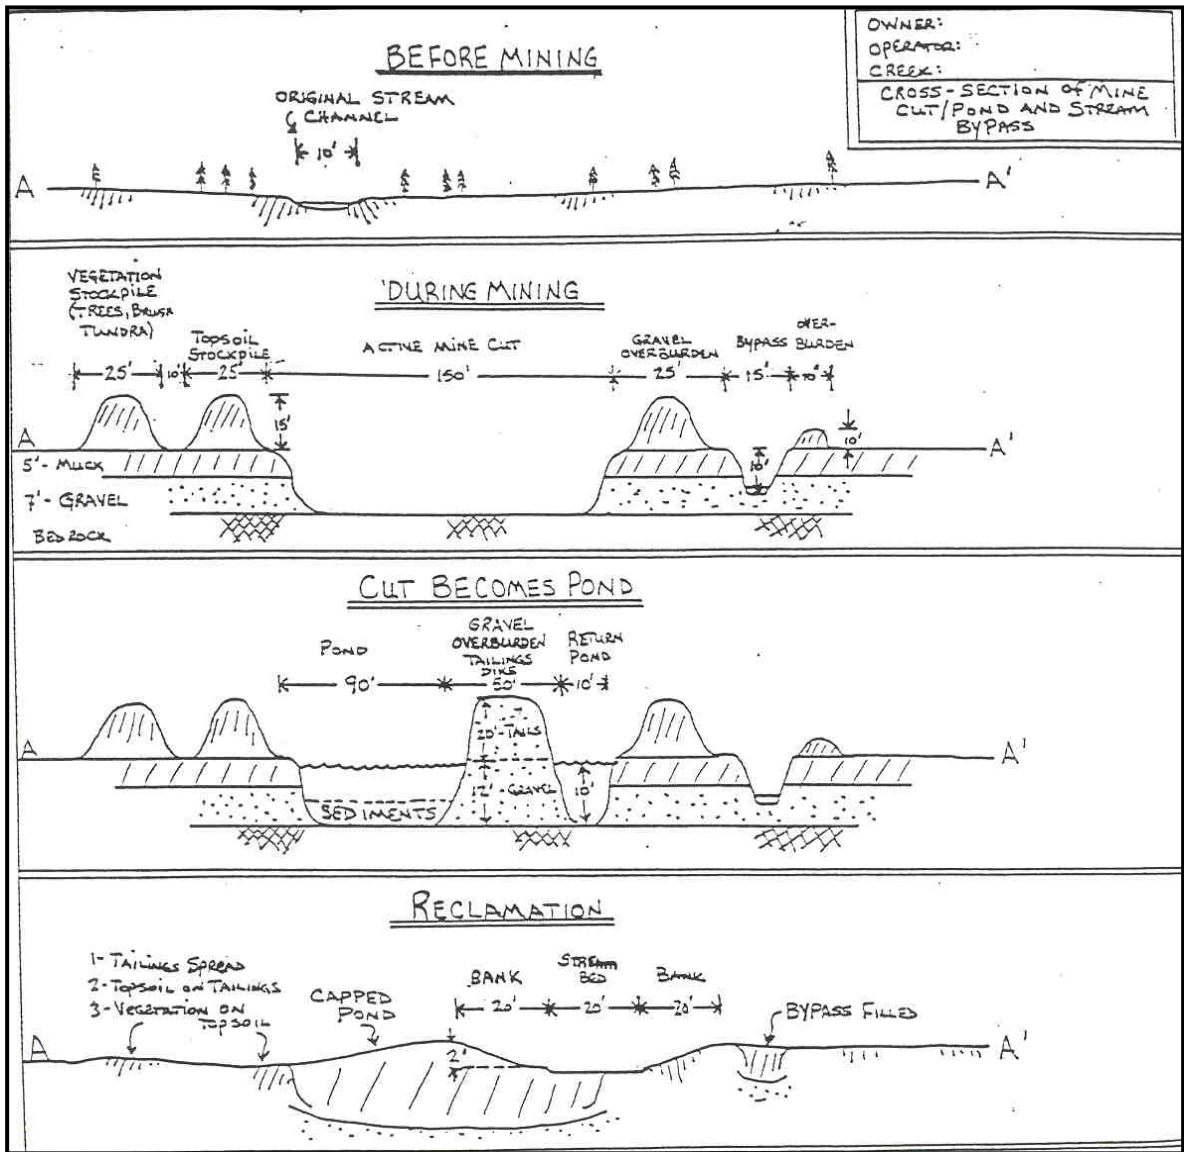 OWNER:
OPERATOR:
CREEK:
CROSS-SECTION OF MINE
CUT/POND AND STREAM
BYPASS
BEFORE MINING
ORIGINAL STREAM
℄ CHANNEL
10'
A A'
DURING MINING
VEGETATION
STOCKPILE
(TREES, BRUSH
TUNDRA)
TOPSOIL
STOCKPILE
ACTIVE MINE CUT
GRAVEL
OVERBURDEN
BYPASS
OVER-
BURDEN
25' 10' 25' 150' 25' 15' 10'
15'
10'
10'
A A'
5'- MUCK
7'- GRAVEL
BEDROCK
CUT BECOMES POND
POND
GRAVEL
OVERBURDEN
TAILINGS
DIKE
RETURN
POND
90' 50' 10'
20'-TAILS
12'-GRAVEL
10'
A A'
SEDIMENTS
RECLAMATION
1- TAILINGS SPREAD
2- TOPSOIL ON TAILINGS
3- VEGETATION ON
TOPSOIL
CAPPED
POND
BANK
STREAM
BED
BANK
20' 20' 20'
BYPASS FILLED
2'
A A'